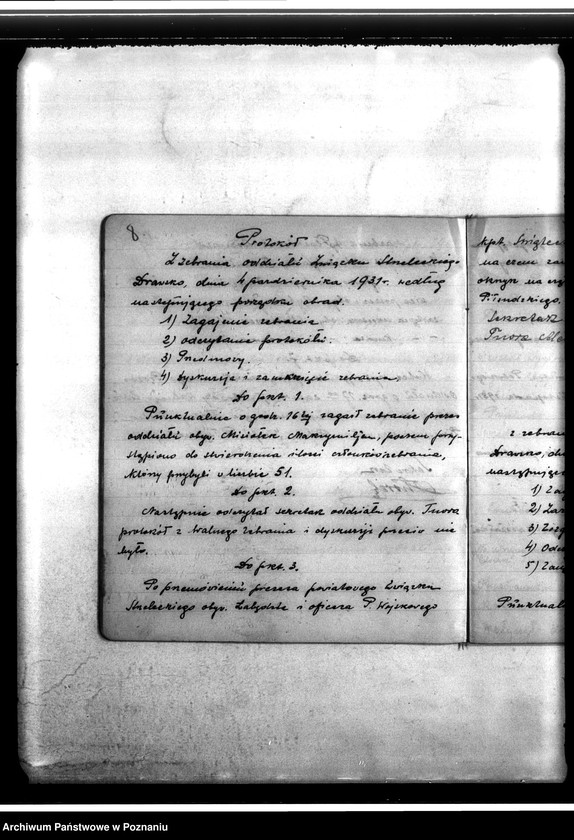 8
Protokół
Z zebrania oddziału Związku Strzeleckiego
Drawsko, dnia 4 października 1931r. według
następującego porządku obrad.
1) Zagajenie zebrania
2) odczytanie protokółu.
3) Przemowy.
4) dyskusja i zamknięcie zebrania
Do pkt. 1.
Punktualnie o godz. 16tej zagaił zebranie prezes
oddziału obyw. Misiołek Maksymiljan, poczem przy-
stąpiono do stwierdzenia ilości członków zebrania,
którzy przybyli w liczbie 51.
Do pkt. 2.
Następnie odczytał sekretarz oddziału obyw. Twora
protokół z walnego zebrania i dyskusji przeciw nie
było.
Do pkt. 3.
Po przemówieniu prezesa powiatowego Związku
Strzeleckiego obyw. i oficera P. Wojskowego
kpt.
na
okrzyk na
Sekretarz
Twora
z zebran
Drawsko, dn
następując
1) Za
2)
3)
4) Odc
5) Zam
Punktual
Archiwum Państwowe w Poznaniu